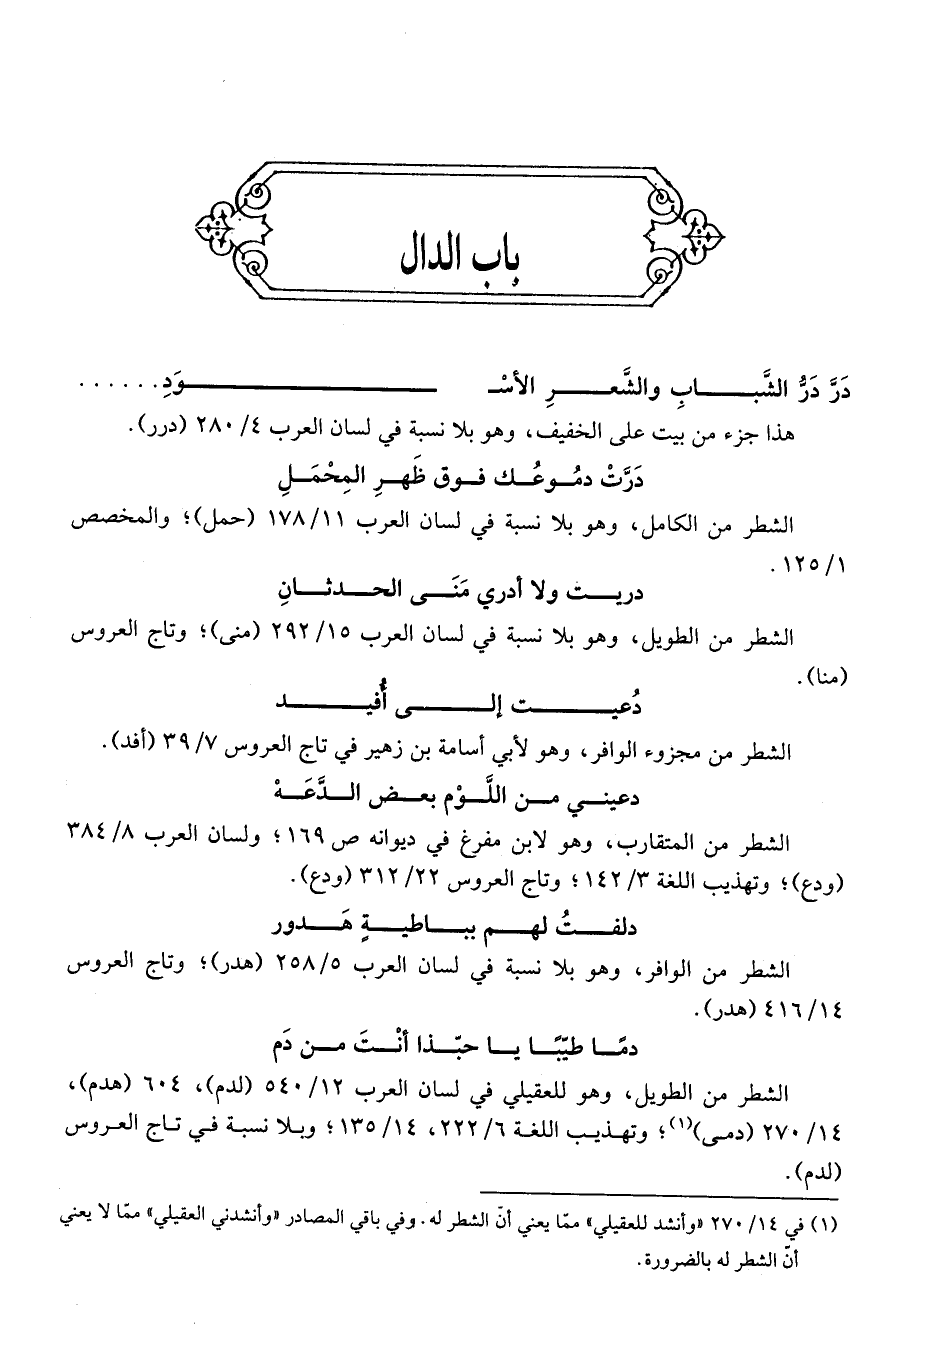 باب الدال
دَرَّ دَرُّ الشَّبـــابِ والشَّعـــرِ الأسْــ ــــوَدِ. . . . . .
هذا جزء من بيت على الخفيف، وهو بلا نسبة في لسان العرب ٤/ ٢٨٠ (درر).
دَرَّتْ دمُـوعُـك فـوق ظَهـرِ المِحْمَـلِ
الشطر من الكامل، وهو بلا نسبة في لسان العرب ١١/ ١٧٨ (حمل)؛ والمخصص
١/ ١٢٥.
دريـت ولا أدري مَنَـى الحـدثـانِ
الشطر من الطويل، وهو بلا نسبة في لسان العرب ١٥/ ٢٩٢ (منى)؛ وتاج العروس
(منا).
دُعيـــت إلـــى أُفيـــد
الشطر من مجزوء الوافر، وهو لأبي أسامة بن زهير في تاج العروس ٧/ ٣٩ (أفد).
دعينـي مـن اللَّـوْم بعـض الـدَّعَـهْ
الشطر من المتقارب، وهو لابن مفرغ في ديوانه ص ١٦٩؛ ولسان العرب ٨/ ٣٨٤
(ودع)؛ وتهذيب اللغة ٣/ ١٤٢؛ وتاج العروس ٢٢/ ٣١٢ (ودع).
دلفـتُ لهـم ببـاطيـةٍ هَـدور
الشطر من الوافر، وهو بلا نسبة في لسان العرب ٥/ ٢٥٨ (هدر)؛ وتاج العروس
١٤/ ٤١٦ (هدر).
دمًـا طيّبًـا يـا حبّـذا أنْـتَ مـن دَم
الشطر من الطويل، وهو للعقيلي في لسان العرب ١٢/ ٥٤٠ (لدم)، ٦٠٤ (هدم)،
١٤/ ٢٧٠ (دمـى)(١)؛ وتهـذيـب اللغة ٦/ ٢٢٢، ١٤/ ١٣٥؛ وبـلا نسبـة فـي تـاج العـروس
(لدم).
(١) في ١٤/ ٢٧٠ «وأنشد للعقيلي» ممّا يعني أنّ الشطر له. وفي باقي المصادر «وأنشدني العقيلي» ممّا لا يعني
أنّ الشطر له بالضرورة.